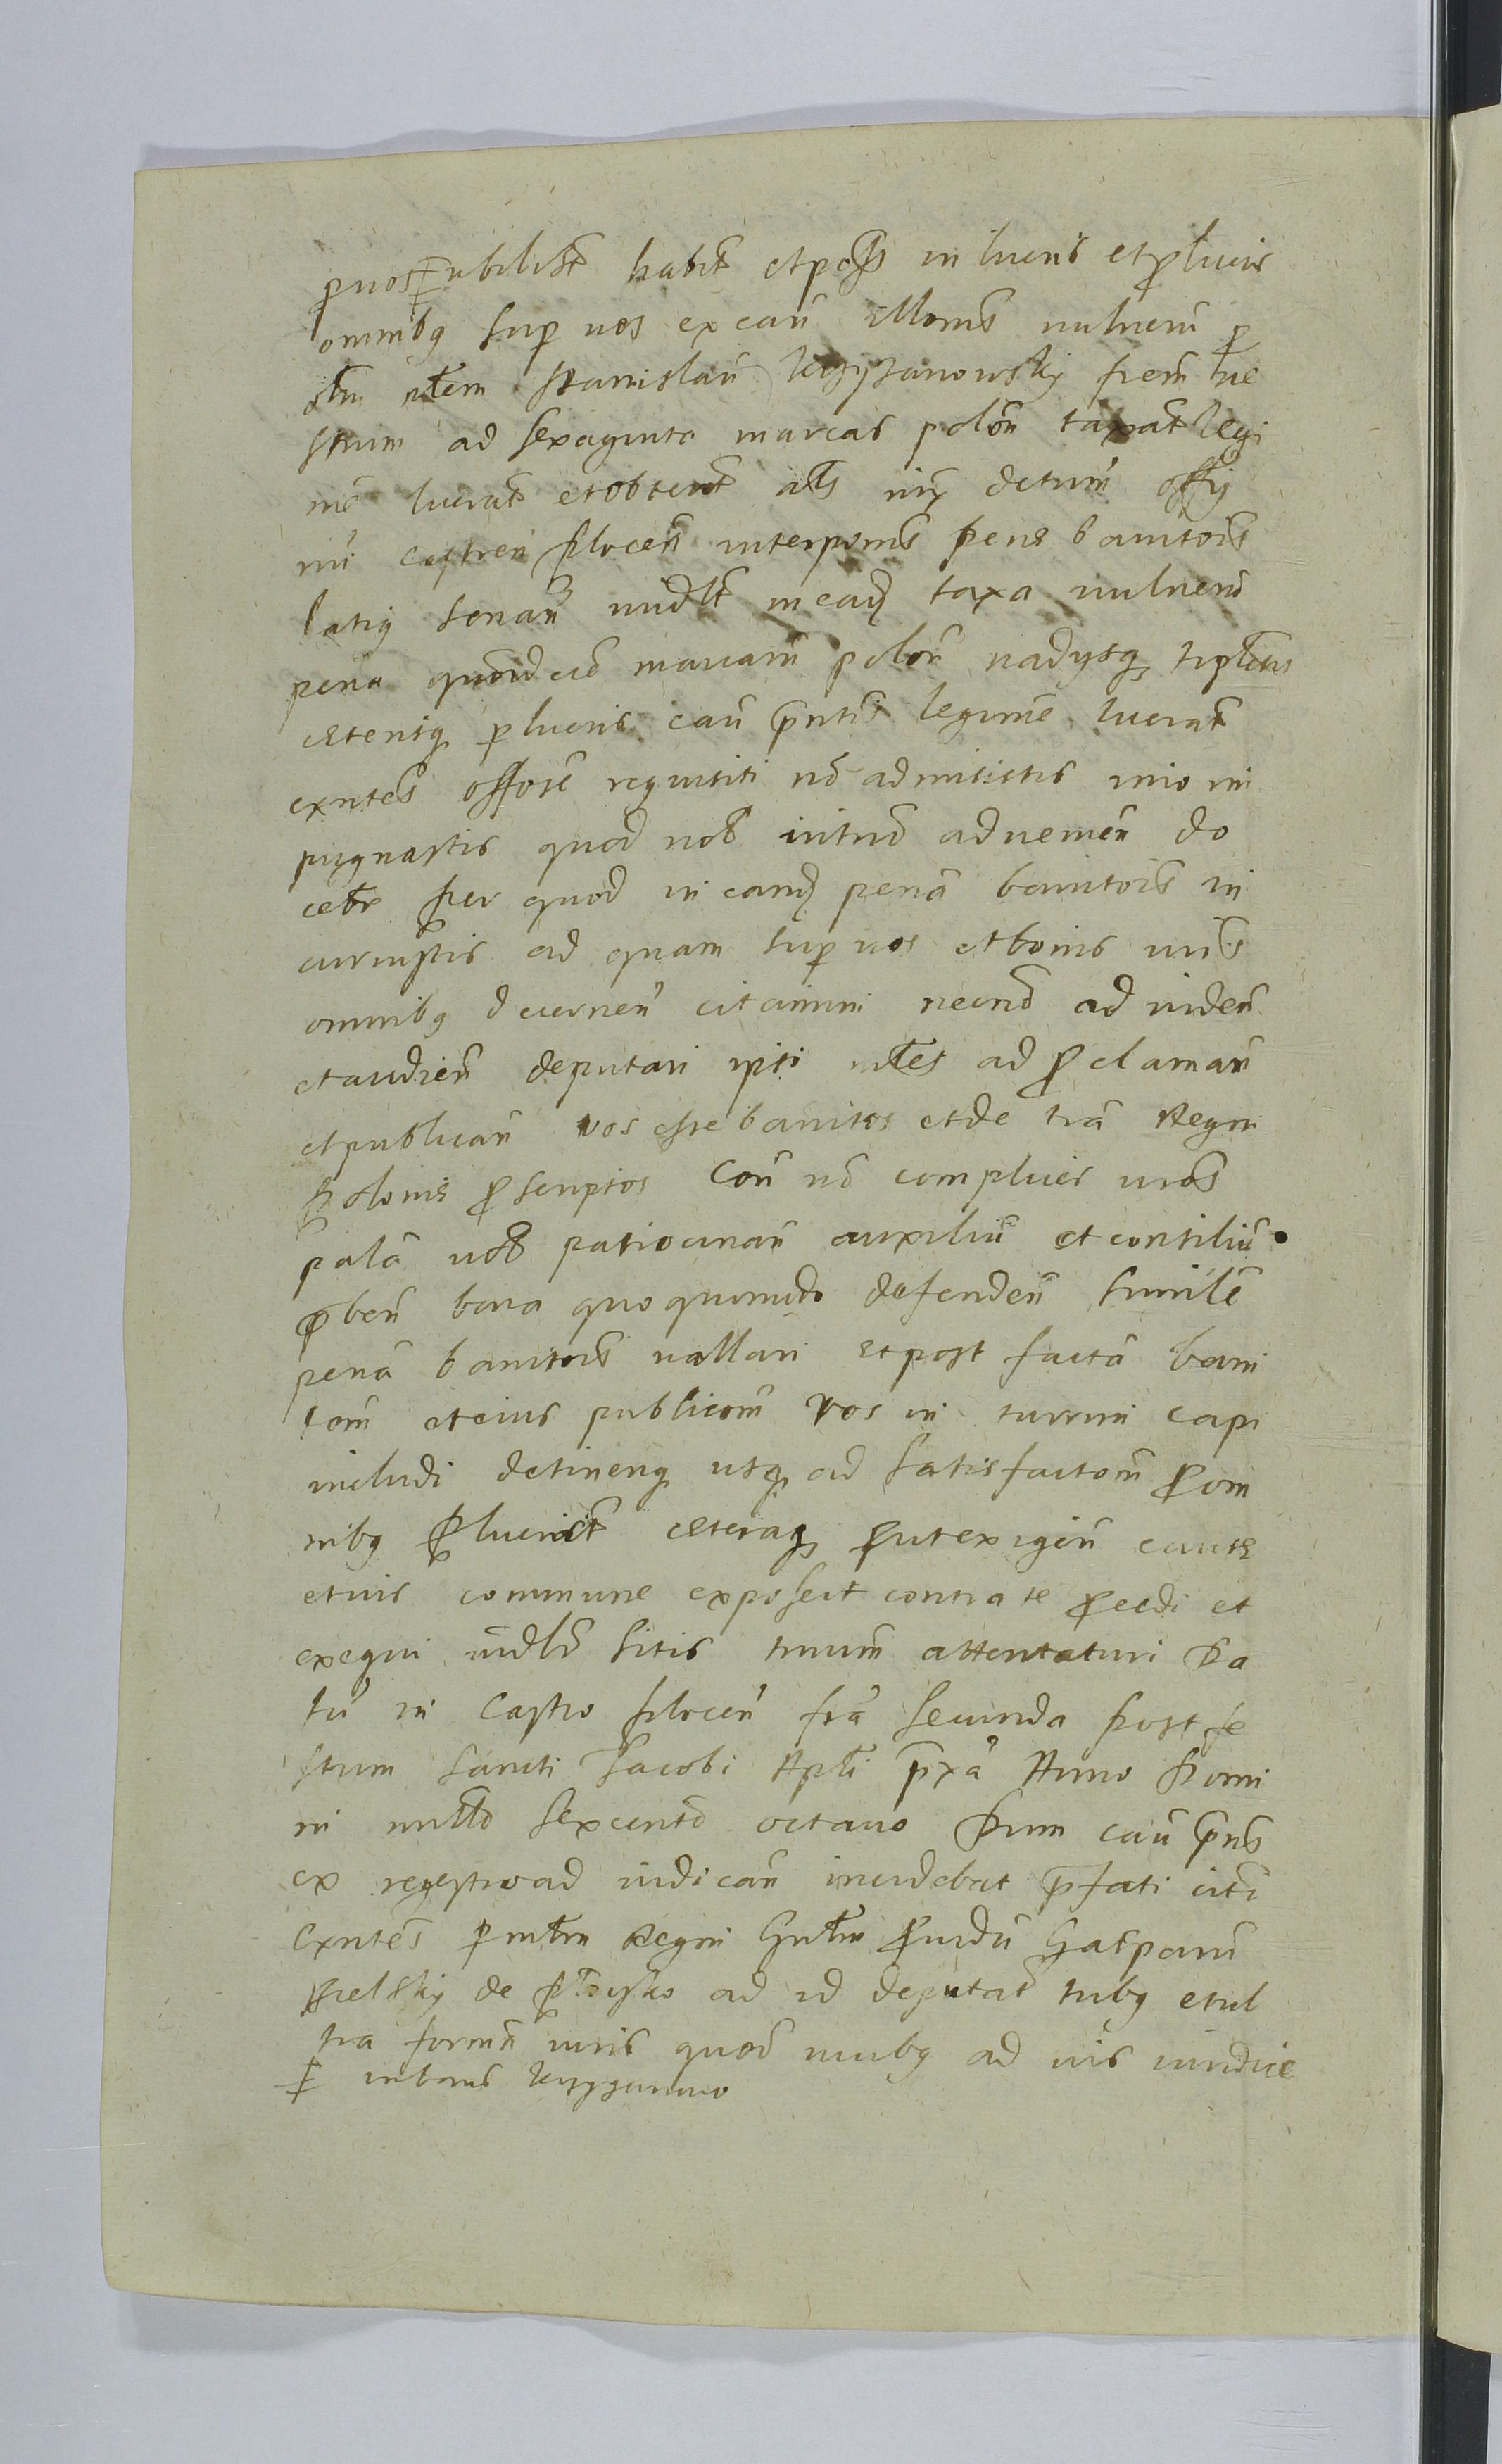 p vos ╪ ubilibt habit et poss in lucris et p lucris
omnibq sup vos ex cau illoms vulneru p
olim nlem Stanislau Krzyzanowsky frem ve
strum ad sexaginta marcas polon taxat legi
me lucrat et obtent als nix detum offy
mi castren plocen interponit pene banitois
latiq senan nudlt in eadz taxa vulneru
pena quordecio marcaru polon vadysq triplicis
ceterisq p lucris cau pntis legitime lucrat
exntes offose requisiti no admisistis imo im
pugnastis quod vob intro adveniен do
cebr per quod in eandz pena banitois in
curristis ad quam sup vos et bonis vris
omnibq decernen citamini necno ad viden
et audien deputari ipsi mles ad pclaman
et publican vos esse banitos et de tra Regni
Polonie pscriptos Con no complices vros
pala vob patiocinan auxiliu et consiliu
pben bona quoquomodo defenden simile
pena banitois vallari et post facta bani
tom et eius publicom vos in turrim capi
includi detineriq usq ad satisfactom p om
nibq p lucrict ceteraq put exigen cause
et ius commune exposcit contra te pcedi et
exequi nidlo sitis tmum attentaturi Da
tu in Castro plocen fra secunda post fe
stum sancti Jacobi Apli pxa Anno Domi
ni millo sexcento octavo Dum cau pns
ex regestro ad iudican incidebat pfati citi
exntes p mlrm Regni Gnlem pvidu Gasparu
Pielsky de Ploysko ad id deputat tribq et ul
tra formn iuris quod vicibq ad ius iudicie
╪ in bonis Krzyzanowo